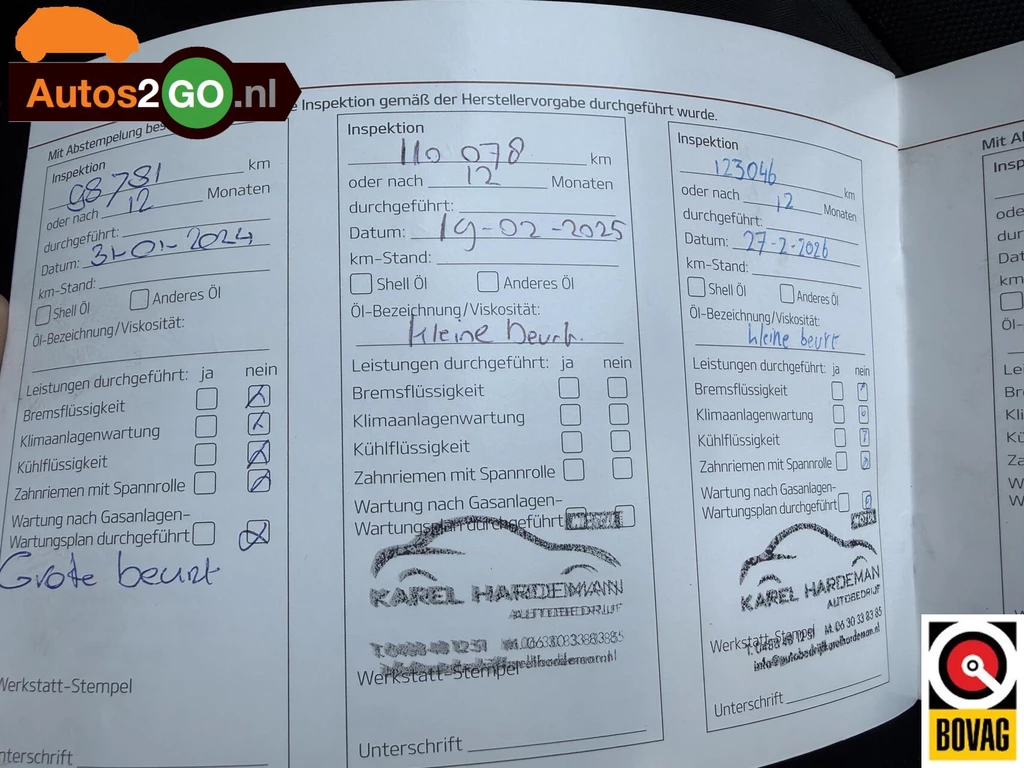 Autos2GO.nl
Mit Abstempelung bes
e Inspektion gemäß der Herstellervorgabe durchgeführt wurde.
Inspektion
98781 km
oder nach 12 Monaten
durchgeführt:
Datum: 31-01-2024
km-Stand:
Shell Öl Anderes Öl
Öl-Bezeichnung/Viskosität:
Leistungen durchgeführt: ja nein
Bremsflüssigkeit
Klimaanlagenwartung
Kühlflüssigkeit
Zahnriemen mit Spannrolle
Wartung nach Gasanlagen-
Wartungsplan durchgeführt
Grote beurt
Werkstatt-Stempel
nterschrift
Inspektion
110 078 km
oder nach 12 Monaten
durchgeführt:
Datum: 19-02-2025
km-Stand:
Shell Öl Anderes Öl
Öl-Bezeichnung/Viskosität:
kleine beurt.
Leistungen durchgeführt: ja nein
Bremsflüssigkeit
Klimaanlagenwartung
Kühlflüssigkeit
Zahnriemen mit Spannrolle
Wartung nach Gasanlagen-
Wartungsplan durchgeführt
KAREL HARDEMAN
AUTOBEDRIJF
Werkstatt-Stempel
Unterschrift
Inspektion
123046 km
oder nach 12 Monaten
durchgeführt:
Datum: 27-2-2026
km-Stand:
Shell Öl Anderes Öl
Öl-Bezeichnung/Viskosität:
kleine beurt
Leistungen durchgeführt: ja nein
Bremsflüssigkeit
Klimaanlagenwartung
Kühlflüssigkeit
Zahnriemen mit Spannrolle
Wartung nach Gasanlagen-
Wartungsplan durchgeführt
KAREL HARDEMAN
AUTOBEDRIJF
T. 0488 48 12 51 M. 06 30 33 83 85
Werkstatt-Stempel
info@autobedrijfkarelhardeman.nl
Unterschrift
Mit A
Insp
BOVAG